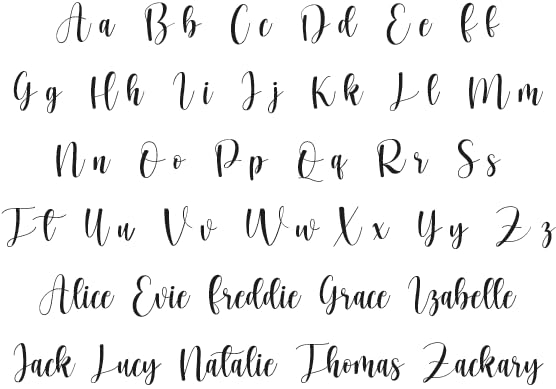 A a B b C c D d E e F f
G g H h I i J j K k L l M m
N n O o P p Q q R r S s
T t U u V v W w X x Y y Z z
Alice Evie Freddie Grace Izabelle
Jack Lucy Natalie Thomas Zackary